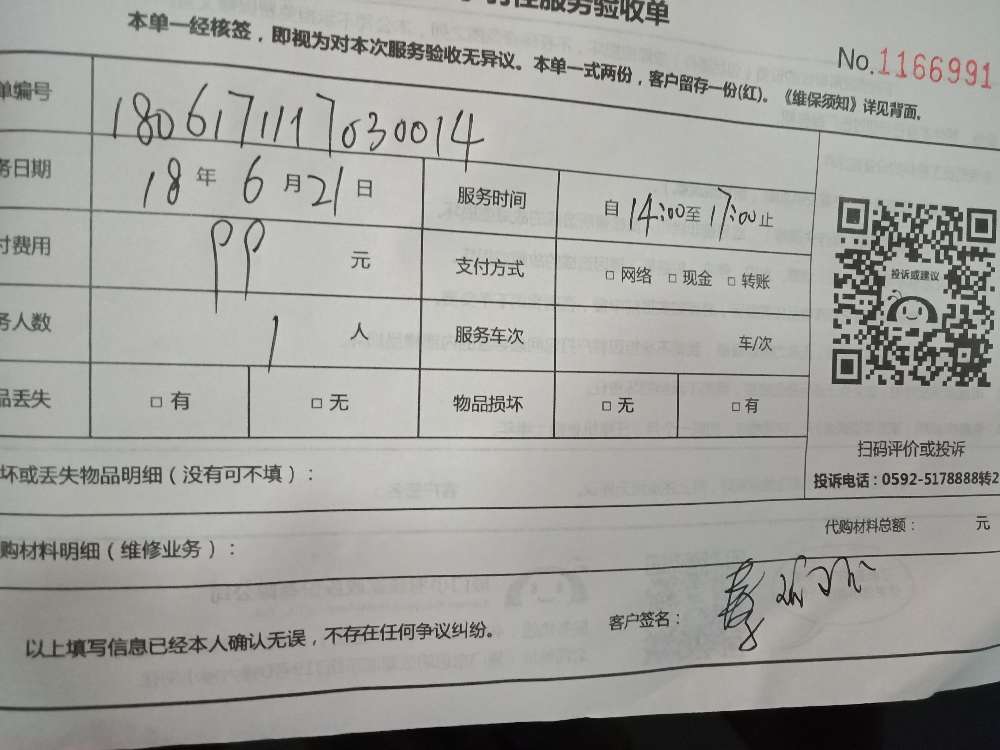 性服务验收单
本单一经核签，即视为对本次服务验收无异议。本单一式两份，客户留存一份(红)。《维保须知》详见背面。
No.1166991
单编号 180617111703 0014
务日期 18 年 6 月 21 日 服务时间 自 14:00 至 17:00 止
付费用 99 元 支付方式 □ 网络 □ 现金 □ 转账
务人数 1 人 服务车次 车/次
品丢失 □ 有 □ 无 物品损坏 □ 无 □ 有
投诉或建议
扫码评价或投诉
投诉电话：0592-5178888转2
坏或丢失物品明细（没有可不填）：
代购材料总额： 元
购材料明细（维修业务）：
客户签名：
以上填写信息已经本人确认无误，不存在任何争议纠纷。